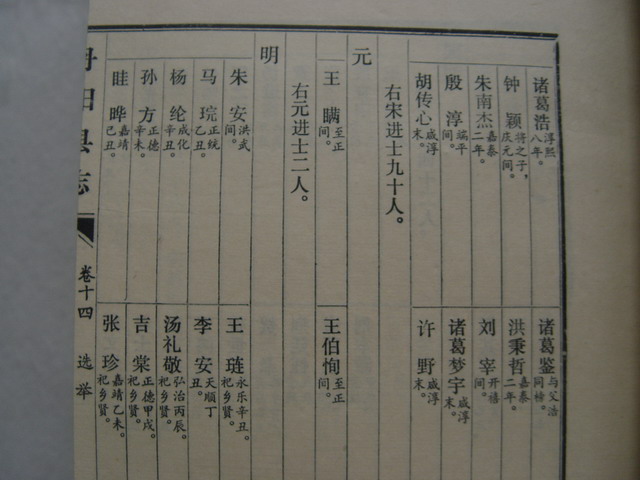 诸葛浩 淳熙八年。
诸葛鉴 与父浩同榜。
钟颖 将之子，庆元间。
洪秉哲 嘉泰二年。
朱南杰 嘉泰二年。
刘宰 开禧间。
殷淳 端平间。
诸葛梦宇 咸淳末。
胡传心 咸淳末。
许野 咸淳末。
右宋进士九十人。
元
王瞒 至正间。
王伯恂 至正间。
右元进士二人。
明
朱安 洪武间。
王琏 永乐辛丑。祀乡贤。
马琓 正统乙丑。
李安 天顺丁丑。
杨纶 成化辛丑。
汤礼敬 弘治丙辰。祀乡贤。
孙方 正德辛未。
吉棠 正德甲戌。祀乡贤。
眭晔 嘉靖己丑。
张珍 嘉靖乙未。祀乡贤。
丹阳县志
卷十四 选举